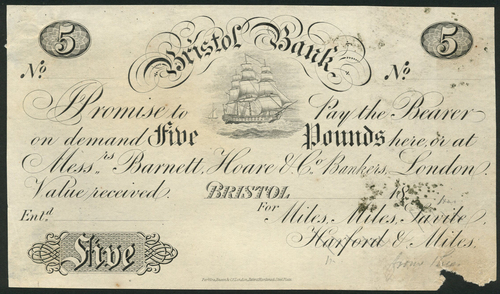 5 Bristol Bank 5
No No
I Promise to Pay the Bearer
on demand Five Pounds here, or at
Mess.rs Barnett, Hoare & Co. Bankers, London.
Value received. BRISTOL 18
Ent.d For Miles, Miles, Savile,
Harford & Miles.
Five